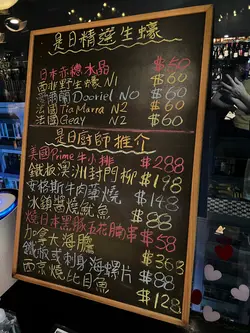 是日精選生蠔
日本赤穗水晶 $60
西北野生蠔 N1 $60
愛爾蘭 Dooriel N0 $60
法國 Tia Marra N2 $60
法國 Geay N2 $60
是日廚師推介
美國Prime牛小排 $288
鐵板澳洲封門柳 $198
安格斯牛肉薄燒 $148
冰鎮醬燒魷魚 $88
燒日本黑豚五花腩串 $58
加拿大海膽 $368
鐵板或刺身海螺片 $88
西京燒比目魚 $128